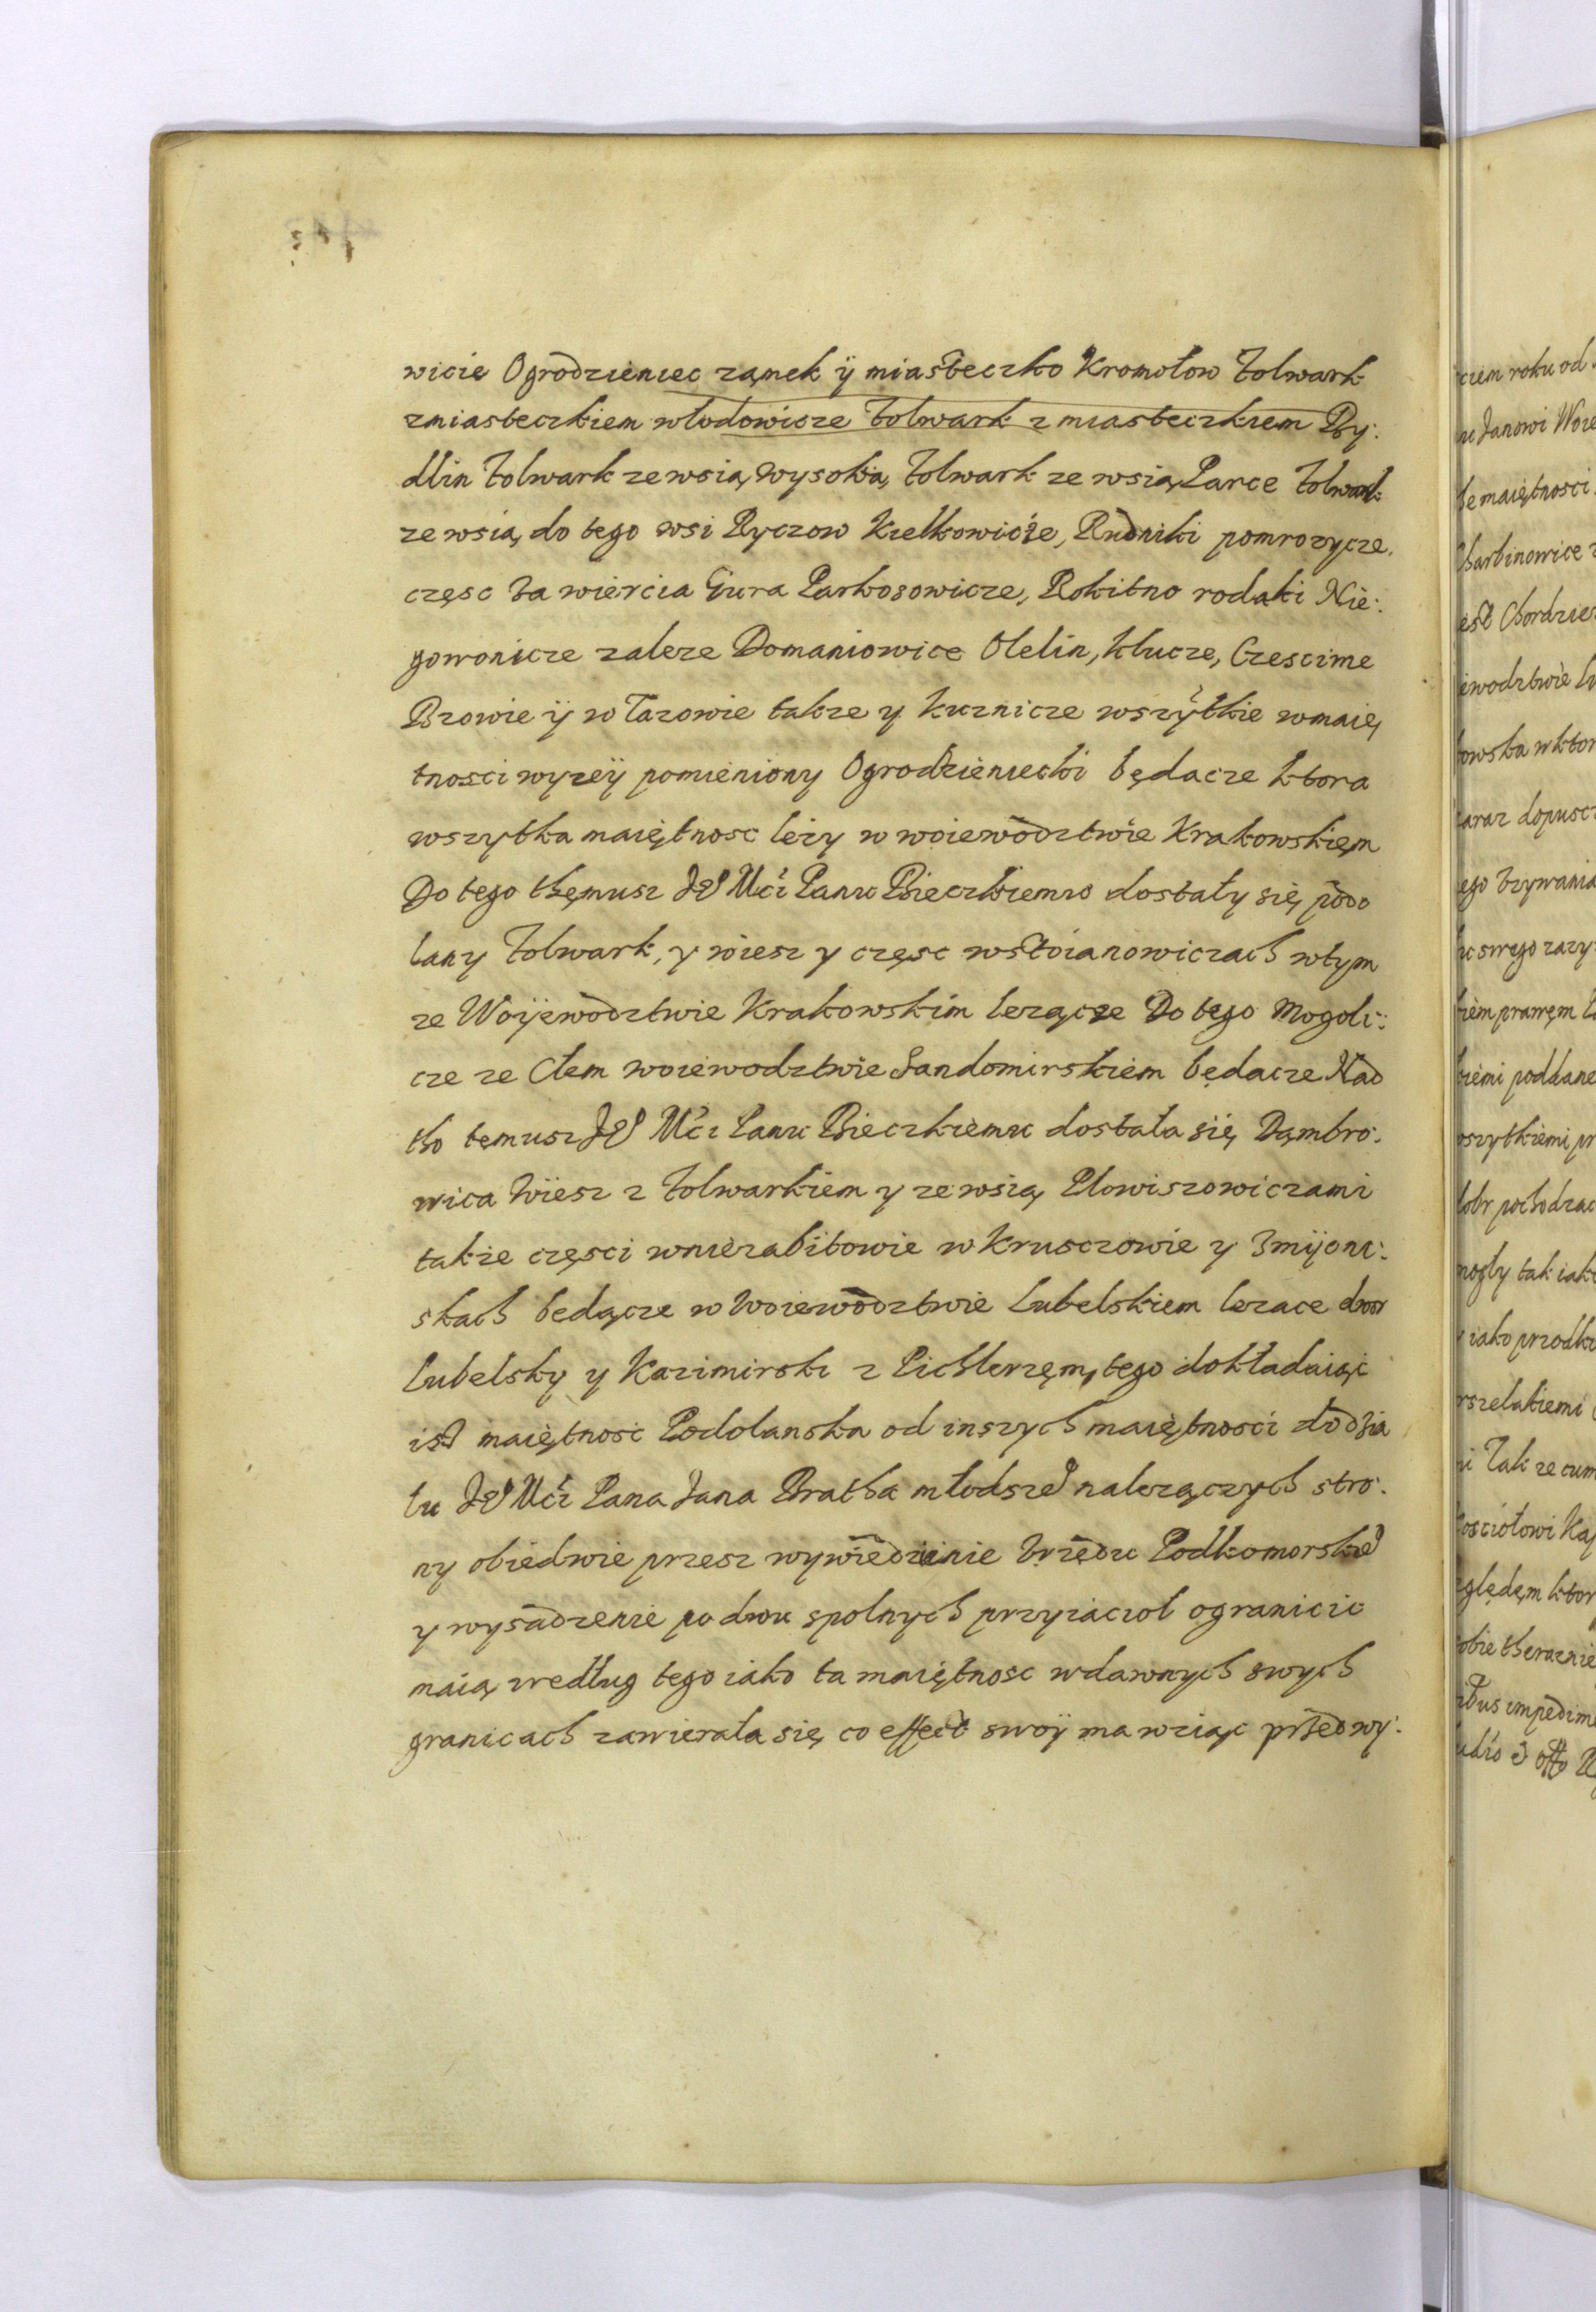 wicie Ogrodzieniec zamek ÿ miasteczko Kromołow folwark
zmiasteczkiem włodowicze folwark z miasteczkiem By:
dlin folwark ze wsią, wysoka, folwark ze wsią, Parce folwark
ze wsią, do tego wsi Ryczow Kiełkowicze, Rudniki pomrozycze,
częsc Zawiercia Gura Parkosowicze, Rokitno rodaki Nie:
gowonicze zaleze Domaniowice Olelin, klucze, Czescime
Bzowie ÿ w Łazowie takze y kuznicze wszÿtkie wmaię
tnosci wyzeÿ pomieniony Ogrodzieniecki będacze ktora
wszytka maiętnosc leży w woiewodztwie Krakowskięm
Do tego thęmusz JE Mci Panu Bieczkiemu dostały się podo
lany folwark, y wiesz y częsc wstoianowiczach wtym
ze Woÿewodztwie Krakowskim lezącze Do tego Mogoli:
cze ze Cłem woiewodztwie Sandomirskiem będacze Nad
tho temusz JE Mci Panu Bieczkiemu dostała się Dąmbro:
wica Wiesz z folwarkiem y ze wsią, Płowiszowiczami
takie częsci wniezabitowie w Krusczowie y Zmijowi:
skach bedącze w Woiewodztwie Lubelskiem lezace dwor
Lubelsky y Kazimirski z Pichlerzęm, tego dokładaiąc
isz maiętnosc Podolanska od inszych maiętnosci do dzia
łu JE Mci Pana Jana Bratha młodsze nalezączych stro:
ny obiedwie przesz wywiedzienie Vrzędu Podkomorskie
y wysadzenie po dwu spolnych przyiaciol ogranicic
maią, według tego iako ta maiętnosc wdawnych swych
granicach zawierała się, co effect swoÿ ma wziąc przed wy: